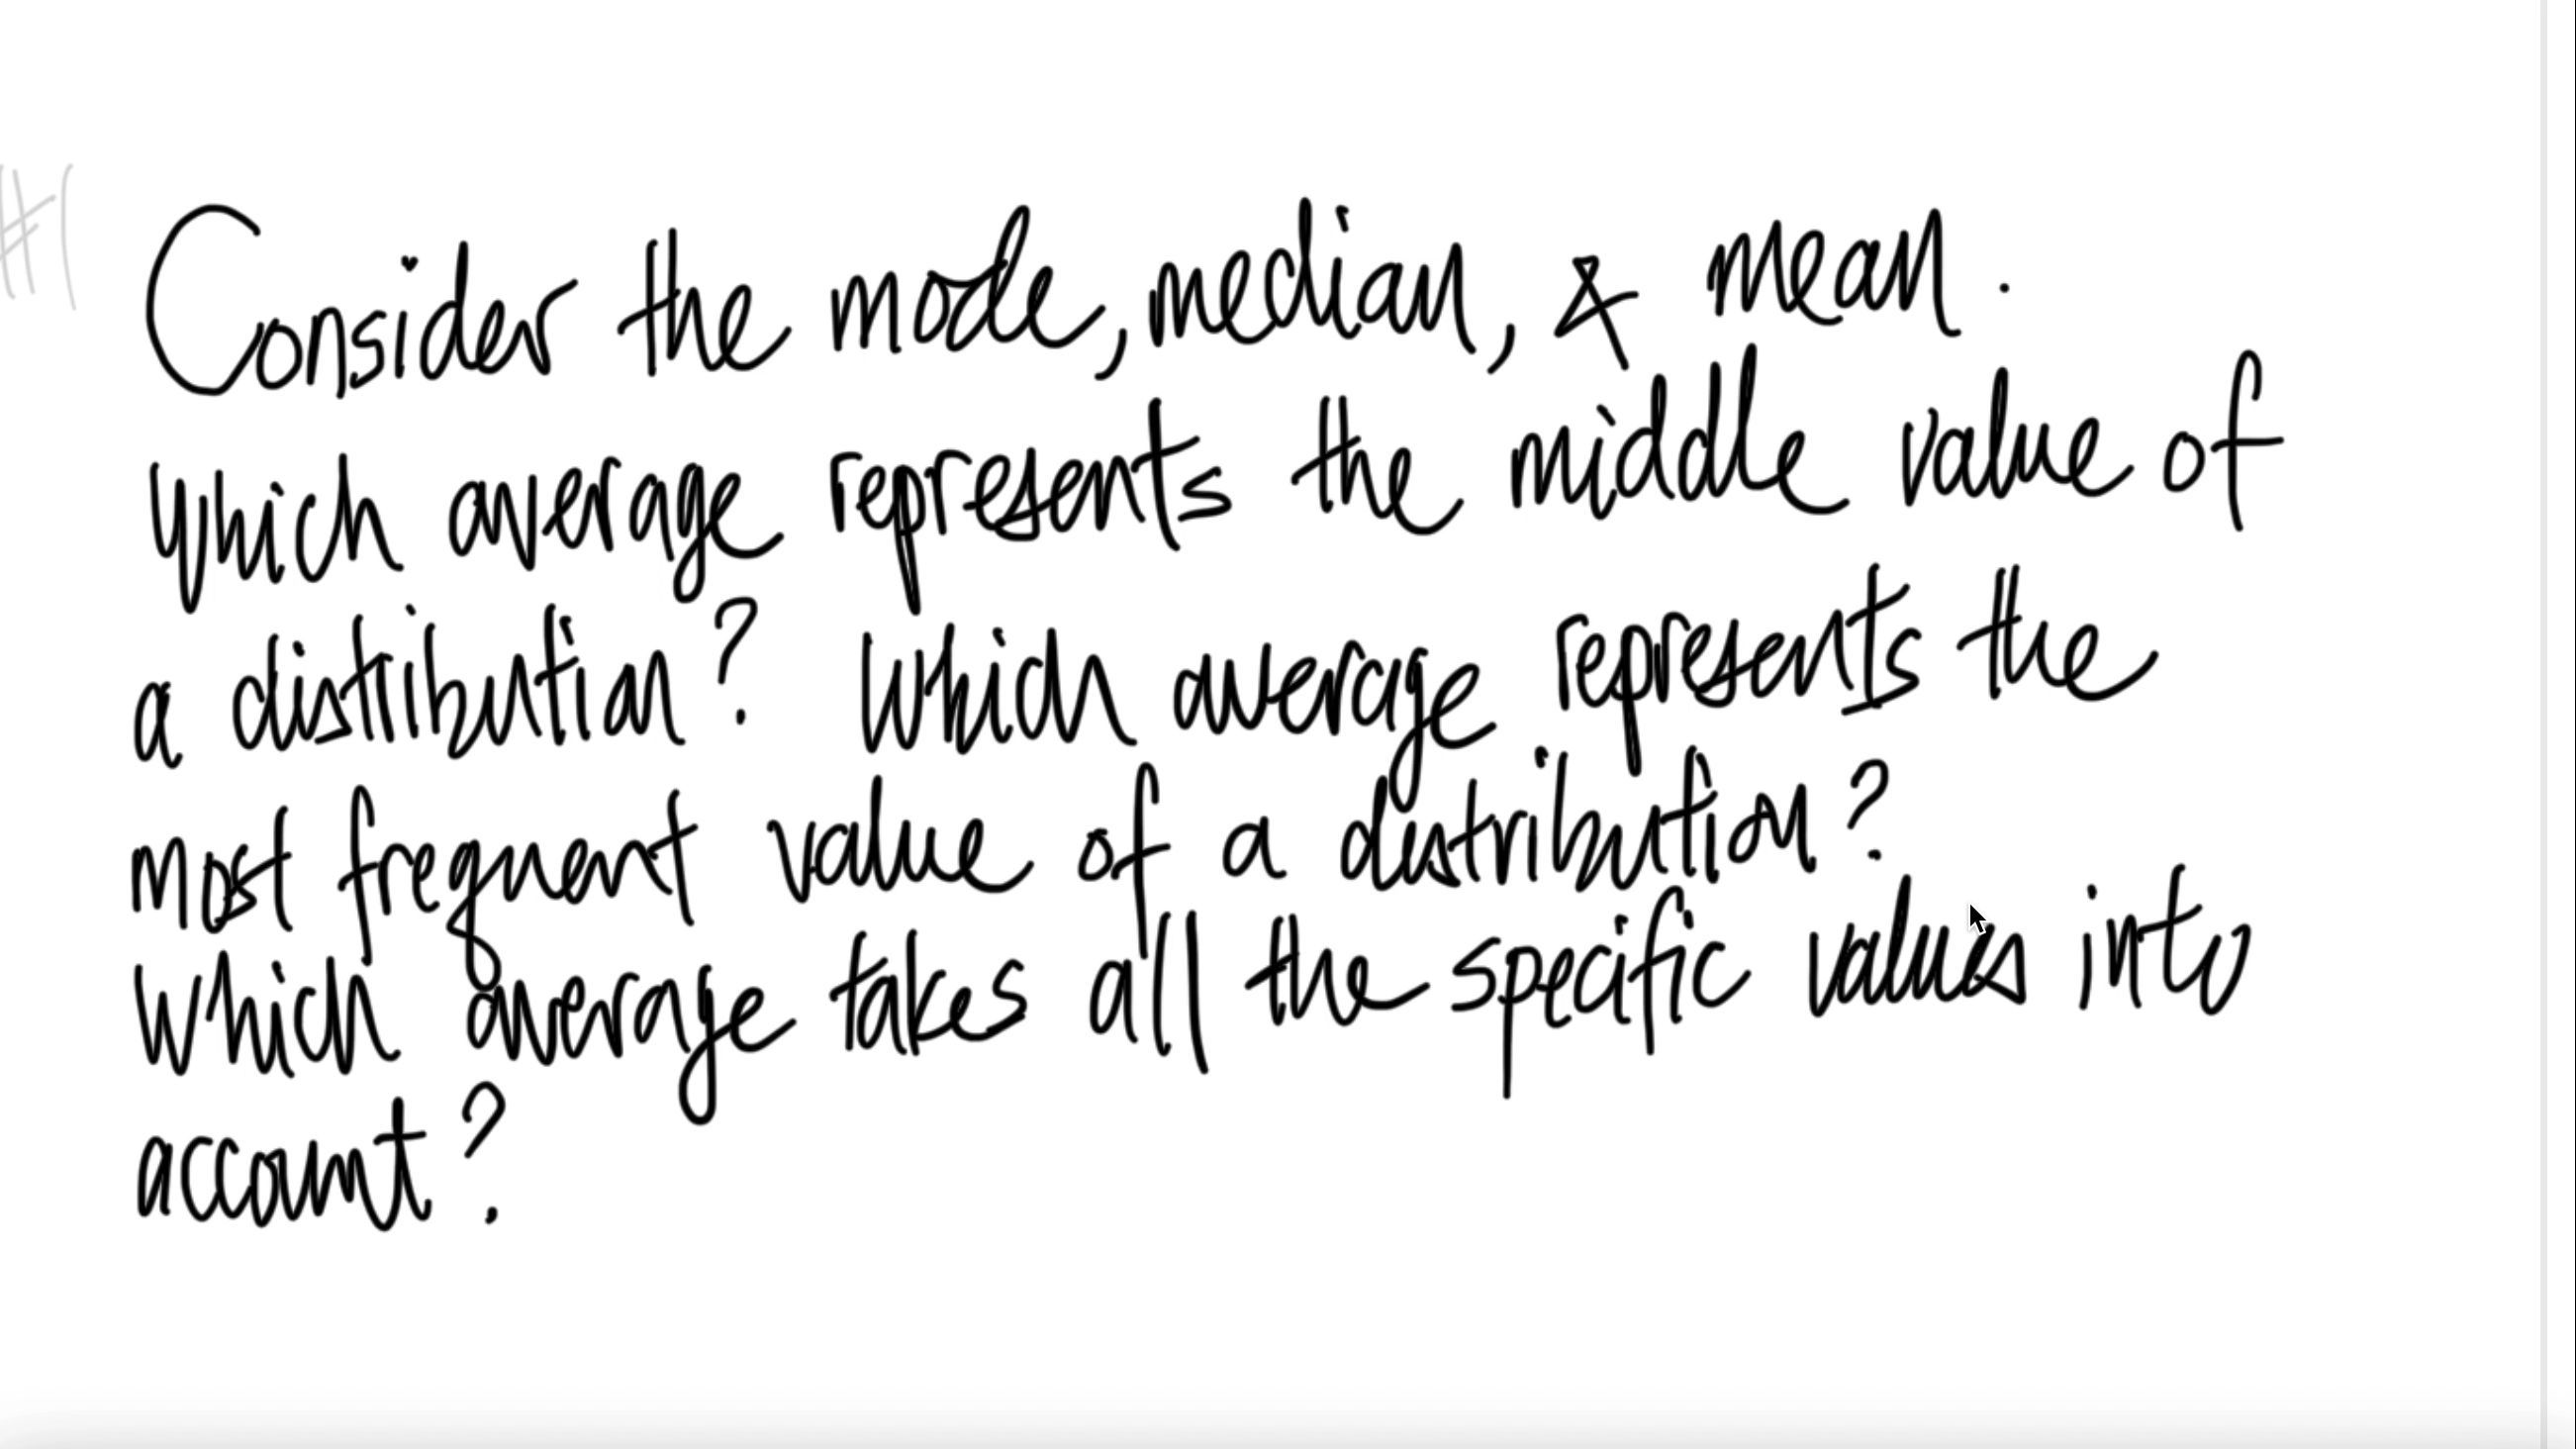 #1
Consider the mode, median, & mean.
Which average represents the middle value of
a distribution? Which average represents the
most frequent value of a distribution?
Which average takes all the specific values into
account?